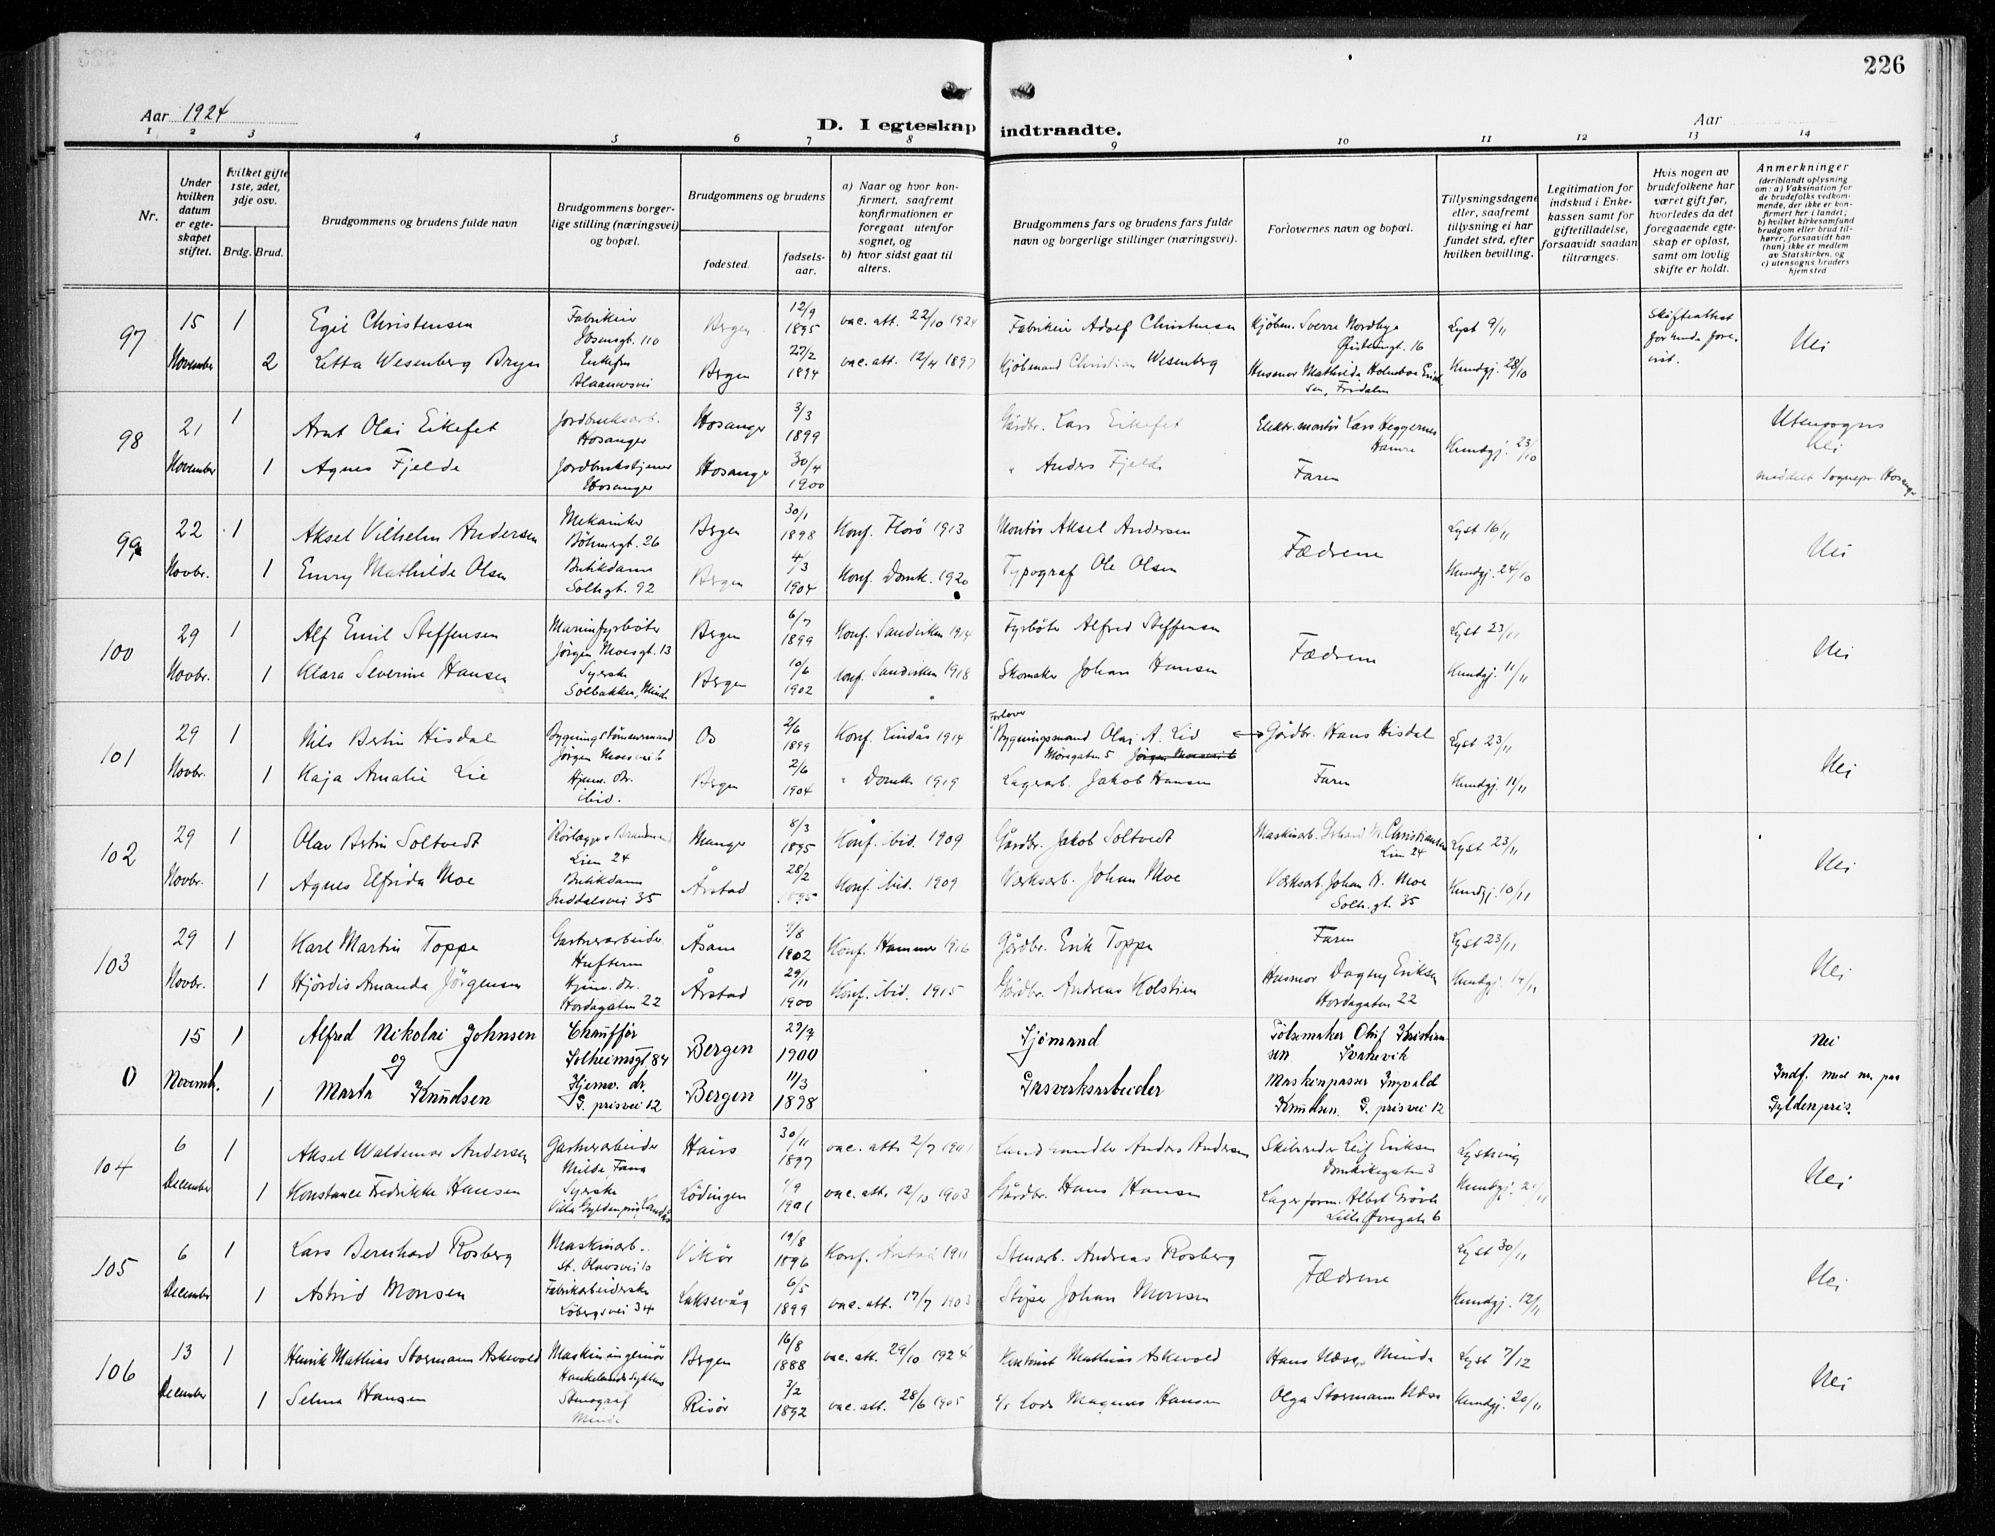 226
Aar 1924
D. I egteskap indtraadte.
Aar
1 2 3 4 5 6 7 8 9 10 11 12 13 14
Nr.
Under hvilken datum er egteskapet stiftet.
Hvilket gifte 1ste, 2det, 3dje osv.
Brdg. Brud.
Brudgommens og brudens fulde navn
Brudgommens borgerlige stilling (næringsvei) og bopæl.
Brudgommens og brudens
fødested.
fødselsaar.
a) Naar og hvor konfirmert, saafremt konfirmationen er foregaat utenfor sognet, og
b) hvor sidst gaat til alters.
Brudgommens fars og brudens fars fulde navn og borgerlige stillinger (næringsvei).
Forlovernes navn og bopæl.
Tillysningsdagene eller, saafremt tillysning ei har fundet sted, efter hvilken bevilling.
Legitimation for indskud i Enkekassen samt for giftetilladelse, forsaavidt saadan tiltrænges.
Hvis nogen av brudefolkene har været gift før, hvorledes da det foregaaende egteskap er opløst, samt om lovlig skifte er holdt.
Anmerkninger
(deriblandt oplysning om: a) Vaksination for de brudefolks vedkommende, der ikke er konfirmert her i landet; b) hvilket kirkesamfund brudgom eller brud tilhører, forsaavidt han (hun) ikke er medlem av Statskirken, og c) utensogns bruders hjemsted
97 15 1 Egil Christensen Fabrikeier Bergen 12/9 1895 vac. att. 22/10 1924 Fabrikeier Adolf Christensen Kjøbm. Sverre Nordbye 16 Lyst 9/11 Skifteattest Nei
November 2 Letta Wesenberg Bryn Enkefru Bergen 22/2 1894 vac. att. 12/4 1897 Kjøbmand Christian Wesenberg Husmor Mathilde Fridalen Kundgj. 28/10
98 21 1 Arnt Olai Eikefet Jordbruksarb. Hosanger Hosanger 3/3 1899 Gårdbr. Lars Eikefet Elektr. montør Lars Heggernes Hamre Kundgj. 23/10 Utensogns Nei
November 1 Agnes Fjelde Jordbrukstjener Hosanger Hosanger 30/4 1900 " Anders Fjelde Faren meddelt Sognepr. Hosanger
99 22 1 Aksel Vilhelm Andersen Mekaniker Bøhmergt. 26 Bergen 30/1 1898 Konf. Florø 1913 Montør Aksel Andersen Fædrene Lyst 16/11 Nei
Novbr. 1 Emry Mathilde Olsen Butikdame Solhgt. 92 Bergen 4/3 1904 Konf. Domk. 1920 Typograf Ole Olsen Kundgj. 24/10
100 29 1 Alf Emil Steffensen Marinefyrbøter Jørgen Moesgt. 13 Bergen 6/7 1899 Konf. Sandviken 1914 Fyrbøter Alfred Steffensen Fædrene Lyst 23/11 Nei
Novbr. 1 Klara Severine Hansen Syerske Solbakken, Minde Bergen 10/6 1902 Konf. Sandviken 1918 Skomaker Johan Hansen Kundgj. 11/11
101 29 1 Nils Bertin Hisdal Bygningstømmermand Jørgen Moesvei 6 Os 2/6 1899 Konf. Lindås 1914 Forlover Bygningsmand Olai A. Lid Møregaten 5 Jørgen Moesvei 6 Gårdbr. Hans Hisdal Lyst 23/11 Nei
Novbr. 1 Kaja Amalie Lie Hjem. dr. ibid. Bergen 2/6 1904 " Domk. 1919 Lagerarb. Jakob Hansen Faren Kundgj. 11/11
102 29 1 Olav Bertin Soltvedt Rørlegger Lien 24 Manger 8/3 1895 Konf. ibid. 1909 Gårdbr. Jakob Soltvedt Maskinarb. M. Christiansen Lien 24 Lyst 23/11 Nei
Novbr. 1 Agnes Elfrida Moe Butikdame Inddalsvei 35 Årstad 28/2 1895 Konf. ibid. 1909 Værksarb. Johan Moe Værksarb. Johan A. Moe 35 Kundgj. 10/11
103 29 1 Karl Martin Toppe Gartnerarbeider Åsane 9/8 1902 Konf. Hammer 1916 Gårdbr. Erik Toppe Faren Lyst 23/11 Nei
Novbr. 1 Hjørdis Amanda Jørgensen Hjem. dr. Hordagaten 22 Årstad 29/11 1900 Konf. ibid. 1915 Gårdbr. Andreas Kolstien Husmor Dagny Eriksen Hordagaten 22 Kundgj. 14/11
0 15 1 Alfred Nikolai Johnsen og Chauffør Solheimsgt. 84 Bergen 29/7 1900 Sjømand Følsemaker Oluf Kristiansen Svanevik Nei
Novemb. 1 Marta Knudsen Hjemv. dr. G. prisvei 12 Bergen 11/3 1898 Gasverksarbeider Maskinpasser Ingvald Knudsen. G. prisvei 12 Indf. med nr. paa Gyldenpris.
104 6 1 Aksel Waldemar Andersen Gartnerarbeider Milde Fana 30/11 1897 vac. att. 2/7 1901 Landhandler Anders Andersen Skibsreder Leif Eriksen Domkirkegaten 3 Lysning Nei
December 1 Konstance Fredrikke Hansen Syerske Lødingen 1/9 1901 vac. att. 12/10 1903 Gårdbr. Hans Hansen Lagerform. Albert Grøvle Lille Øvregate 6 Kundgj.
105 6 1 Lars Bernhard Rosberg Maskinarb. St. Olavsvei 10 Vikør 19/8 1896 Konf. Årstad 1911 Stenarb. Andreas Rosberg Fædrene Lyst 30/11 Nei
December 1 Astrid Monsen Fabrikarbeiderske Løbergsvei 34 Laksevåg 6/5 1899 vac. att. 17/7 1903 Støper Johan Monsen Kundgj. 12/11
106 13 1 Henrik Mathias Stormann Askevold Maskiningeniør Bergen 16/8 1888 vac. att. 29/10 1924 Mathias Askevold Hans Næss, Minde Lyst 7/12 Nei
December 1 Selma Hansen Stenograf Minde Risør 3/2 1892 vac. att. 28/6 1905 Lods Magnus Hansen Olga Stormann Næss Kundgj. 20/11